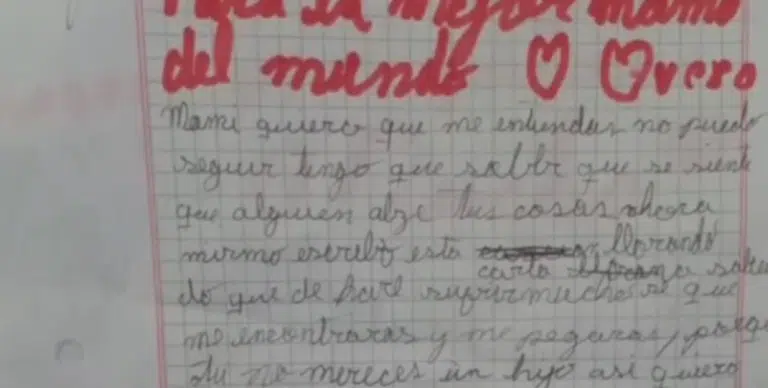 Para la mejor mama
del mundo vero
Mami quiero que me entiendas no puedo
seguir tengo que saber que se siente
que alguien alze tus cosas ahora
mismo escribo esta llorando
carta sabien
do que te hare sufrir mucho se que
me encontraras y me pegaras, porque
tu no mereces un hijo asi quiero